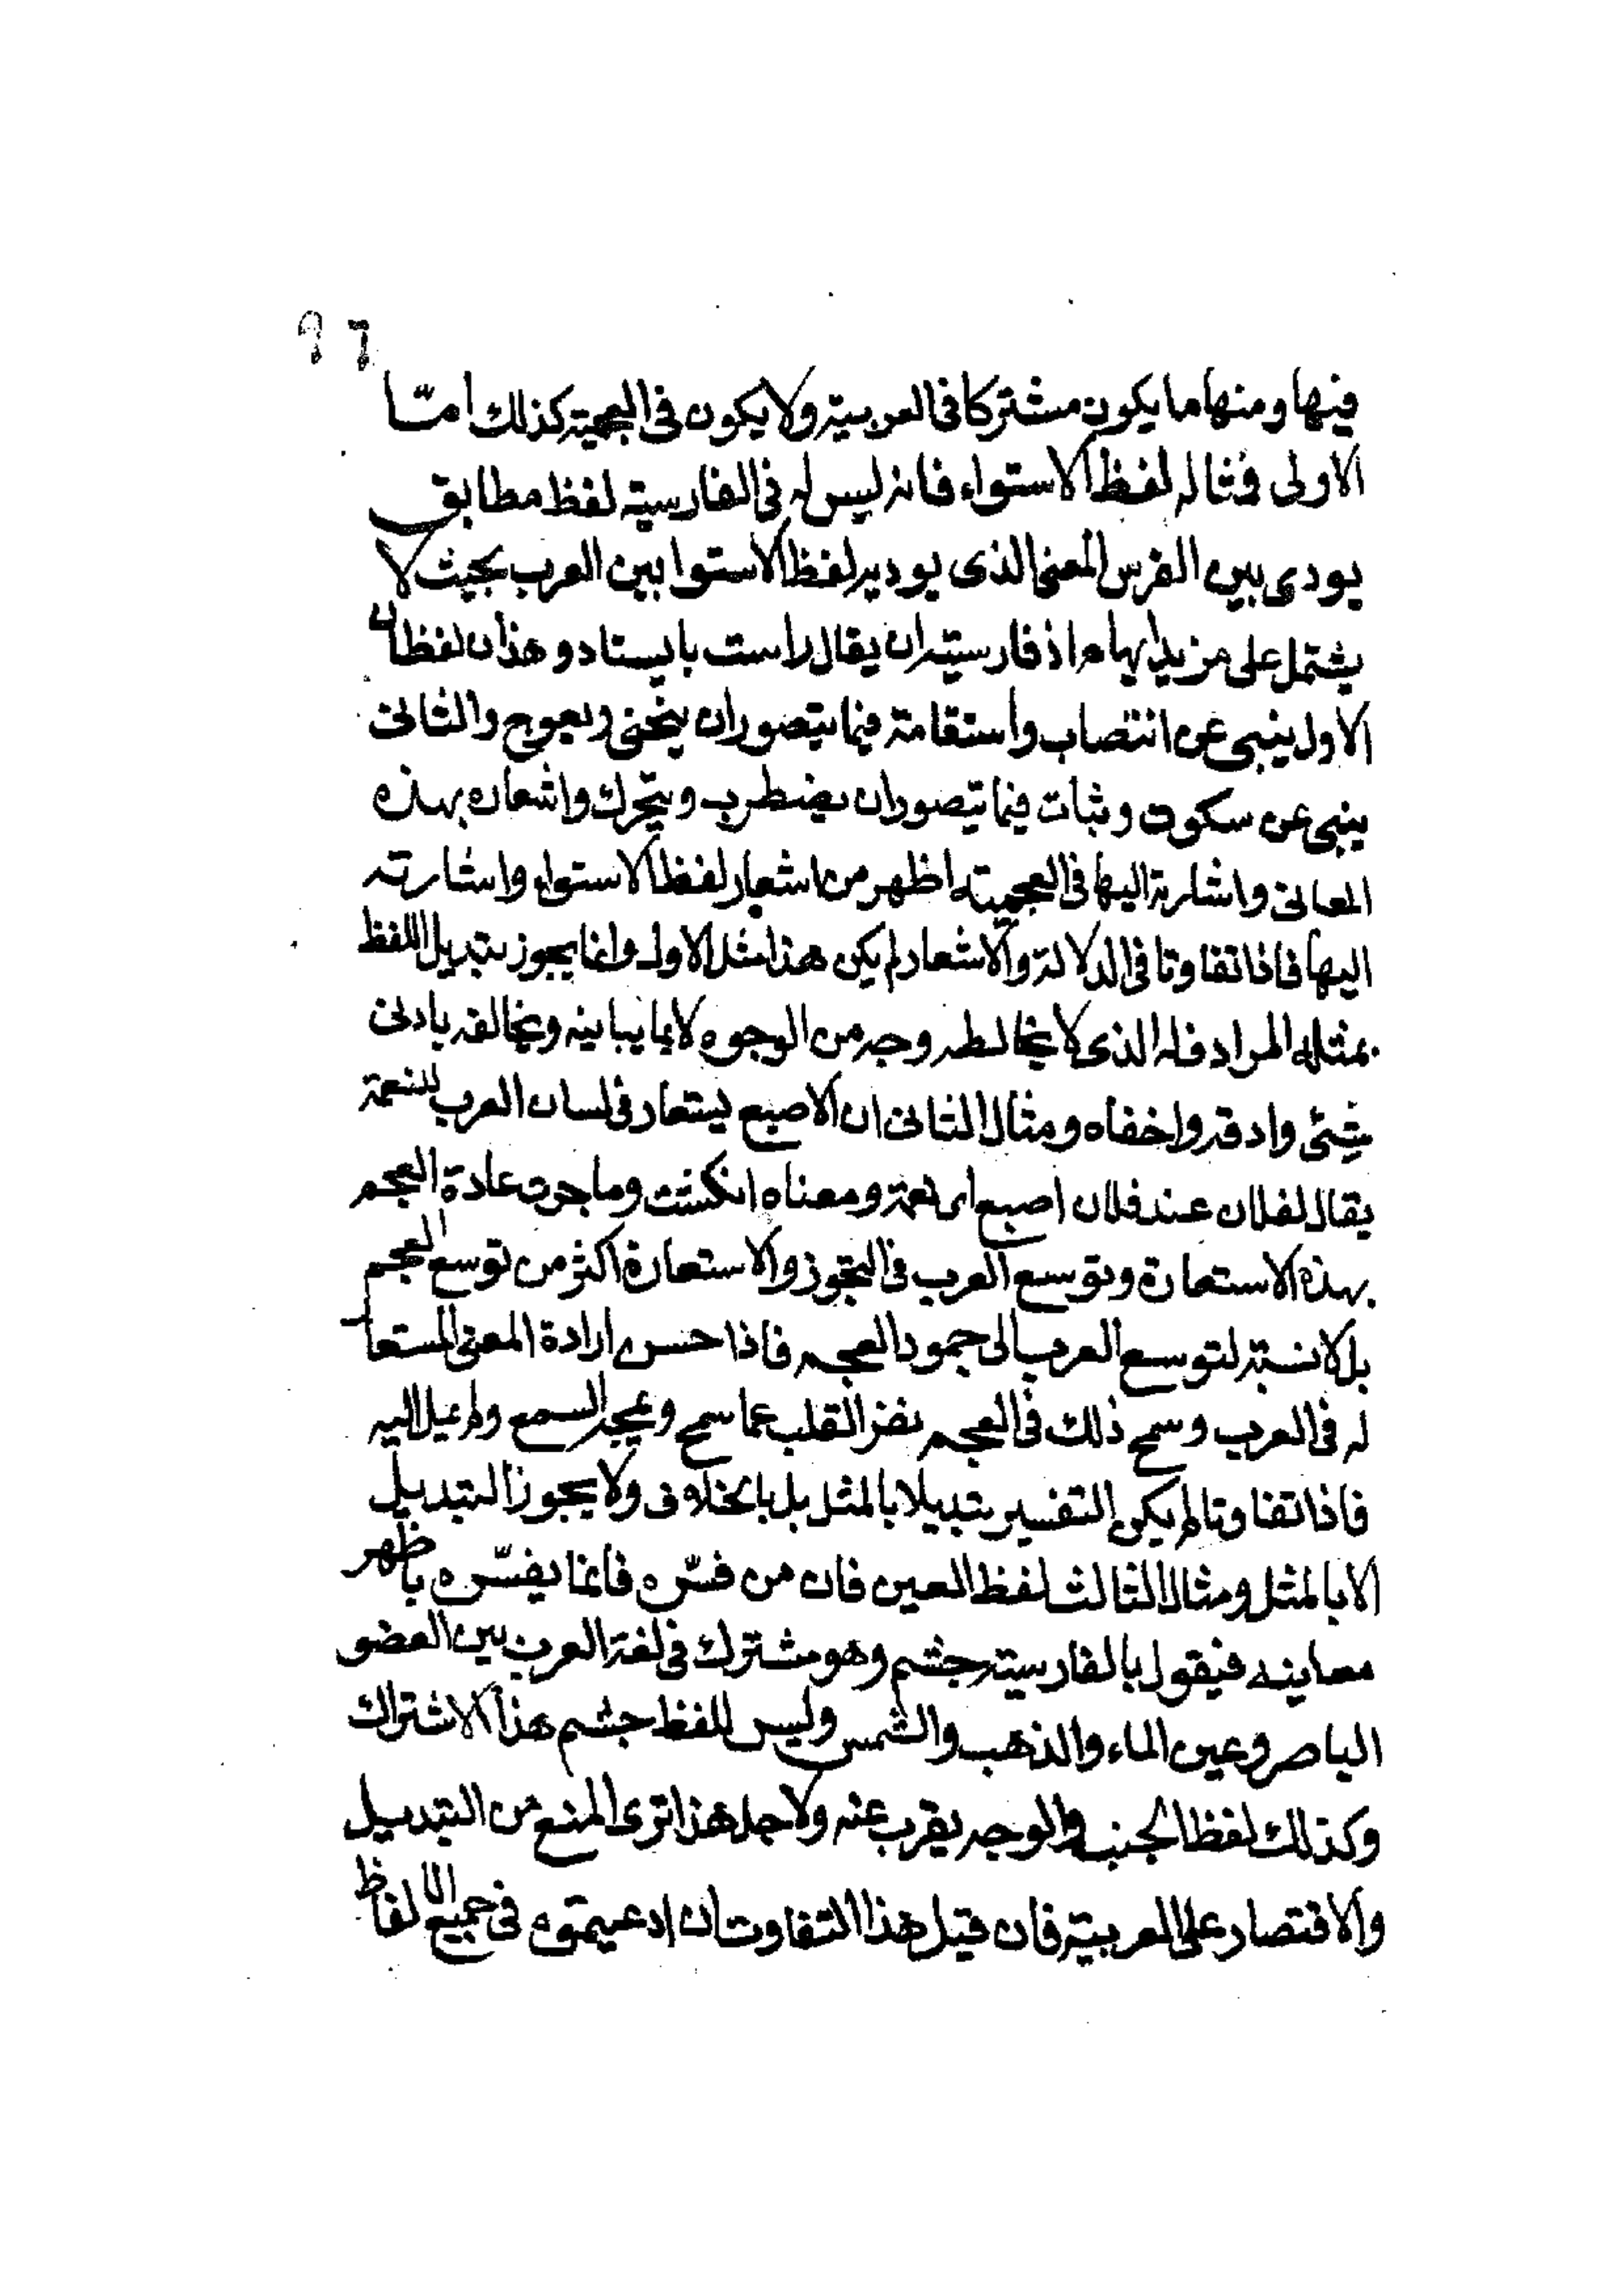 فيها ومنها ما يكون مشتركا فى العربية ولا يكون فى العجمية كذلك امّا
الاولى فمثاله لفظ الاستواء فانه ليس له فى الفارسية لفظ مطابق
يودى بين الفرس المعنى الذى يوديه لفظ الاستوا بين العرب بحيث لا
يشتمل على مزيد ايهام اذ فارسيته ان يقال راست بايستاد وهذان لفظان
الاول ينبى عن انتصاب واستقامة فيما يتصور ان ينحنى ويعوج والثانى
ينبى عن سكون وثبات فيما يتصور ان يضطرب ويتحرك واشعاره بهذه
المعانى واشارته اليها فى العجمية اظهر من اشعار لفظ الاستواء واشارته
اليها فاذا تفاوتا فى الدلالة والاشعار لم يكن هذا مثل الاول وانما يجوز تبديل اللفظ
بمثله المرادف له الذى لا يخالطه وجه من الوجوه لا بما يباينه ويخالفه بادنى
شئ وادقه واخفاه ومثال الثانى ان الاصبع يستعار فى لسان العرب للنعمة
يقال لفلان عند فلان اصبع اى نعمة ومعناه انكشت وما جرت عادة العجم
بهذه الاستعارة وتوسع العرب فى التجوز والاستعارة اكثر من توسع العجم
بل لا نسبة لتوسع العرب الى جمود العجم فاذا حسن ارادة المعنى المستعار
له فى العرب وسمج ذلك فى العجم نفر القلب عما سمج ويمجه السمع ولم يميل اليه
فاذا تفاوتا لم يكن التفسير تبديلا بالمثل بل بالخلاف ولا يجوز التبديل
الا بالمثل ومثال الثالث لفظ العين فان من فسّره فانما يفسّره باظهر
معاينه فيقول بالفارسية جشم وهو مشترك فى لغة العرب بين العضو
الباصر وعين الماء والذهب والشمس وليس للفظ جشم هذا الاشتراك
وكذلك لفظ الجنب والوجه يقرب عنه ولاجل هذا نرى المنع من التبديل
والاقتصار على العربية فان قيل هذا التفاوت ان ادعيتموه فى جميع الالفاظ